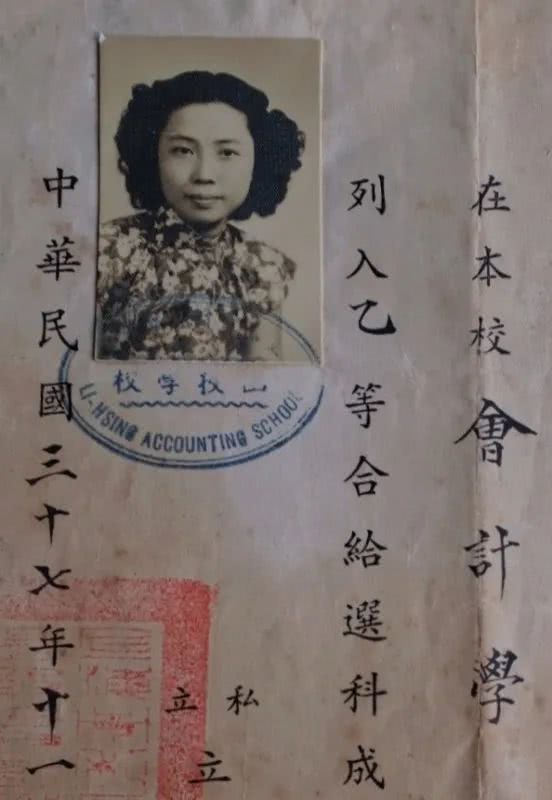 在本校會計學
列入乙等合給選科成
私立
立
LI-HSING ACCOUNTING SCHOOL
中華民國三十七年十一